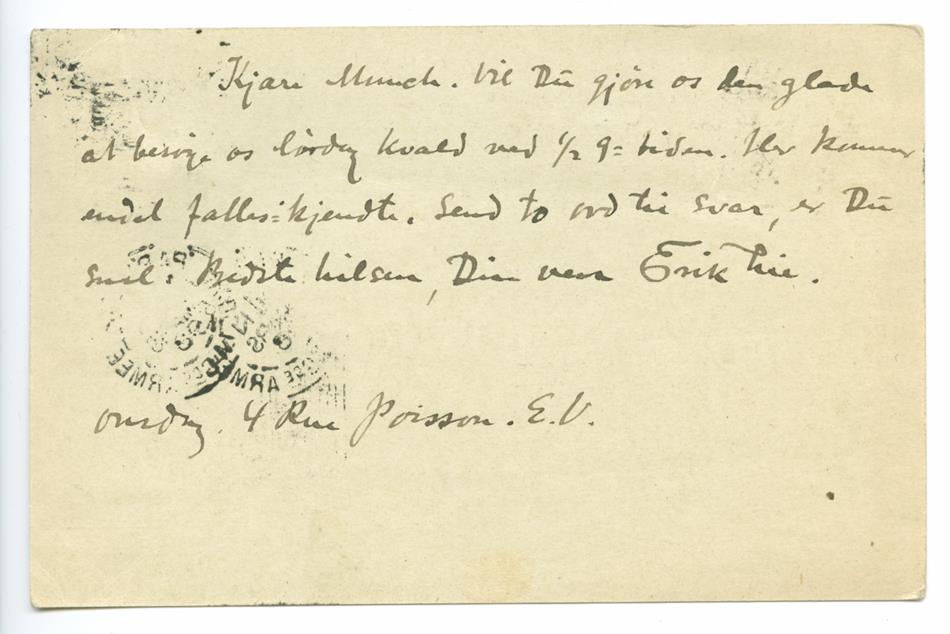 Kjære Munch. Vil Du gjöre os den glæde
at besöge os lördag kvæld ved ½ 9= tiden. Her kommer
endel fælles=kjendte. Send to ord til svar, er Du
snil. Bedste hilsen, Din ven Erik Lie.
onsdag. 4 Rue Poisson. E.V.